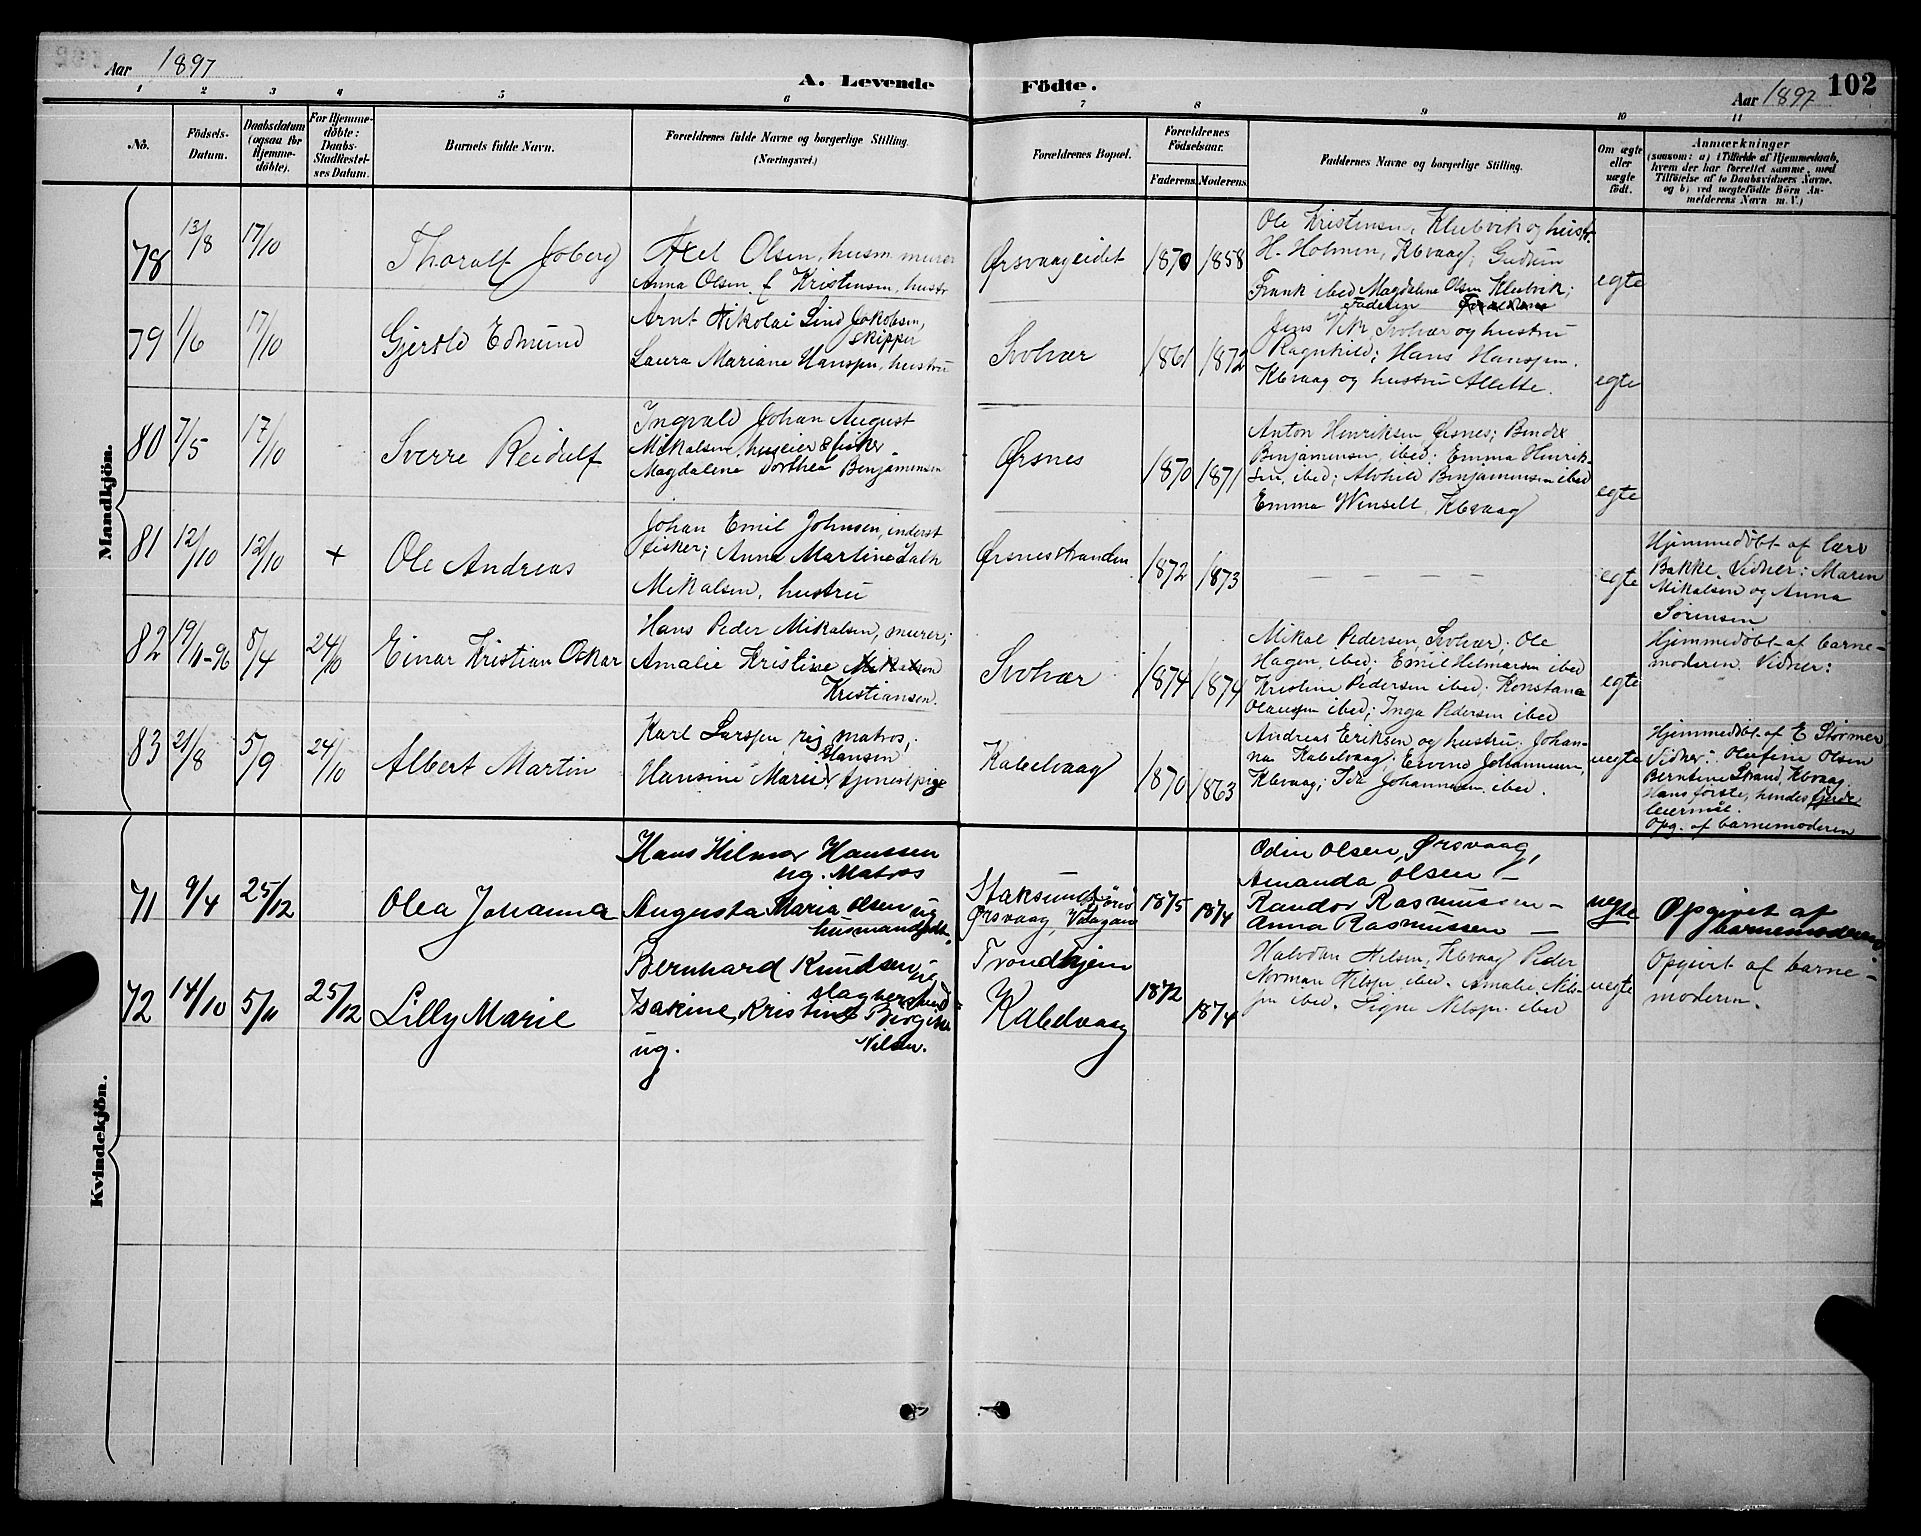 Aar 1897
A. Levende Födte.
Aar 1897 102
1 2 3 4 5 6 7 8 9 10 11
No.
Födsels-
Datum.
Daabsdatum
(ogsaa for
Hjemme-
döbte).
For Hjemme-
döbte:
Daabs-
Stadfæstel-
ses Datum.
Barnets fulde Navn.
Forældrenes fulde Navne og borgerlige Stilling.
(Næringsvei.)
Forældrenes Bopæl.
Forældrenes
Födselsaar.
Faderens. Moderens.
Faddernes Navne og borgerlige Stilling.
Om ægte
eller
uægte
födt.
Anmærkninger
(saasom: a) i Tilfælde af Hjemmedaab,
hvem der har forrettet samme, med
Tilföielse af to Daabsvidners Navne,
og b) ved uægtefödte Börn An-
melderens Navn m. V.)
Mandkjön.
78 13/8 17/10
Thoralf Joberg
Axel Olsen, husm. murer
Anna Olsen f. Kristensen, hustr
Ørsvaageidet
1870 1858
Ole Kristensen, Kleivik og hustr.
H. Holmen, Kbvaag; Gudrun
Frank ibed Magdalene Olsen Kleivik;
Faderen
egte
79 1/6 17/10
Gjerold Edmund
Arnt Nikolai Lind Jakobsen,
skipper
Laura Mariane Hanssen, hustru
Svolvær
1861 1872
Jens Vik, Svolvær og hustru
Ragnhild; Hans Hanssen
Kbvaag og hustru Allette.
egte
80 7/5 17/10
Sverre Reidulf
Ingvald Johan August
Mikalsen, huseier & fisker
Magdalene Dorthea Benjaminsen
Ørsnes
1870 1871
Anton Henriksen Ørsnes; Bendix
Benjaminsen, ibed; Emma Henrik-
sen, ibed; Alvhild Benjaminsen ibed
Emma Winsell, Kbvaag
egte
81 12/10 12/10 +
Ole Andreas
Johan Emil Johnsen, inderst
fisker; Anna Martine Lath
Mikalsen, hustru
Ørsnesstranden
1872 1873
— — — —
egte
Hjemmedøbt af lærer
Bakke. Vidner: Maren
Mikalsen og Anna
Sørensen
82 19/11-96 8/4 24/10
Einar Kristian Oskar
Hans Peder Mikalsen, murer;
Amalie Kristine Mikalsen
Kristiansen.
Svolvær
1874 1874
Mikal Pedersen, Svolvær; Ole
Hagen, ibed. Emil Hilmarsen ibed
Kristine Pedersen ibed. Konstanse
Olaussen ibed; Inga Pedersen ibed
egte
Hjemmedøbt af barne-
moderen. Vidner:
83 21/8 5/9 24/10
Albert Martin
Karl Larssen, ug matros,
Hansen
Hansine Marie, tjenestpige
Kabelvaag
1870 1863
Andreas Eriksen og hustru Johan-
na Kabelvaag. Eivind Johannesen,
Kbvaag; Ida Johannesen ibed.
uegte
Hjemmedøbt af E Størmer
Vidner: Olufine Olsen
Berntine Strand, Kbvaag
Hans første, hindes fjerde
leiermål.
Opg. af barnemoderen
Kvindekjön.
71 9/4 25/12
Olea Johanna
Hans Hilmar Hanssen
ug. Matros
Augusta Maria Olsen ug
Ørsvaag, Vaagan
1875 1874
Odin Olsen, Ørsvaag,
Amanda Olsen —
Randor Rasmussen —
Anna Rasmussen —
uegte
Opgivet af
barnemoderen
72 14/10 5/11 25/12
Lilly Marie
Bernhard Knudsen ug
slagtersvend
Isakine, Kristine Birgitte
ug. Nilsen.
Trondhjem
Kabelvaag
1872 1874
Halvdan Nilsen, Kbvaag Peder
Norman Nilsen ibed. Amalie Nils-
sen ibed. Signe Nilssen ibed
uegte
Opgivet af barne-
moderen.